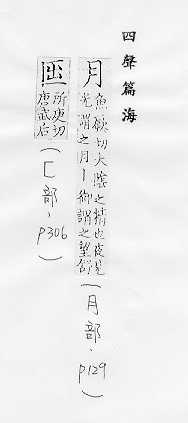 四聲篇海
月 魚欮切大陰之精也夜見
光謂之月丨御謂之望舒
(月部、p129)
所庚切
唐武后
(匚部、p306)